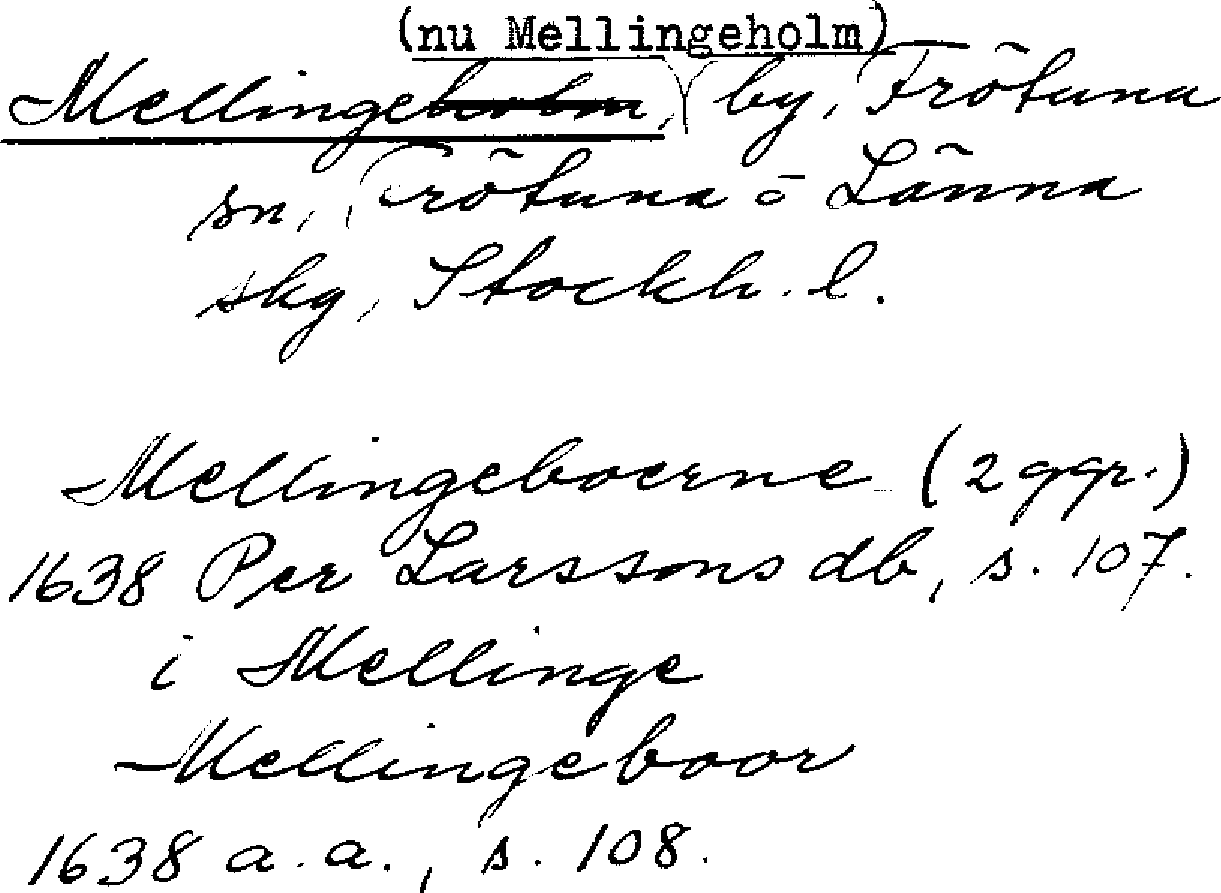 (nu Mellingeholm)
Mellingeholm, by, Frötuna
sn, Frötuna o Länna
skg, Stockh. l.
Mellingeboerne (2 ggr.)
1638 Per Larssons db, s. 107.
i Mellinge
Mellingeboor
1638 a.a., s. 108.